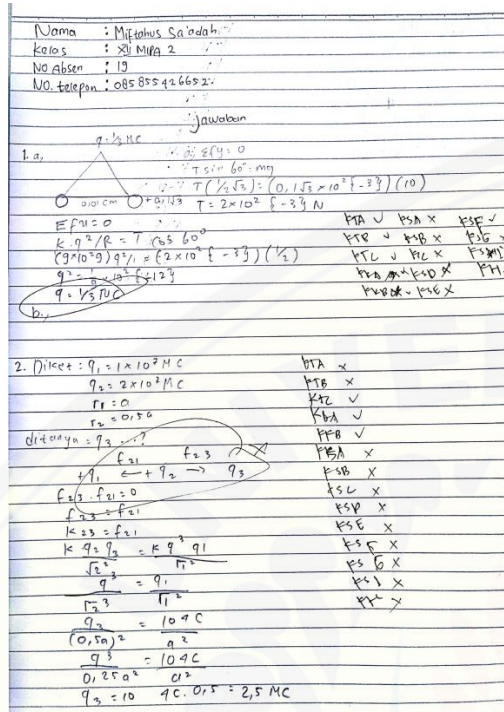 Nama : Miftahus Sa'adah
Kelas : XII MIPA 2
No Absen : 19
NO. telepon : 085855426652
Jawaban
q. 1/3 MC
1. a,
Σfy = 0
T sin 60° = mg
T (1/2√3) = (0,1√3 × 10² {-3}) (10)
0,01 cm
T = 2×10² {-3} N
Efx = 0
K. q²/R = T cos 60°
(9×10²9) q²/1 = {2×10² {-3}) (1/2)
q = 1/3
b.,
KTA ✓ KSA × KSF ✓
KTB ✓ KSB × KSG ×
KTC ✓
KSE ×
2. Diket : q₁ = 1×10² MC
q₂ = 2×10² MC
r₁ = a
r₂ = 0,5a
ditanya = q₃ ...?
f21 f23
+q₁ ← + q₂ → q₃
f23 . f21 = 0
f23 = f21
K 23 = f21
K q₂ q₃ = K q³ q1
√2² r₁²
q³ = q₁
r₂³ r₁²
q₃ = 104C
(0,5a)² a²
q³ = 104C
0,25a² a²
q₃ = 10 4C. 0,5 = 2,5 MC
KTA ×
KTB ×
KTC ✓
KBA ✓
KSA ×
KSB ×
KSC ×
KSD ×
KSE ×
KSF ×
KSG ×
KSI ×